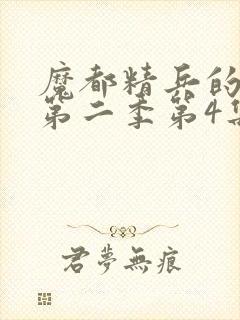 魔都精兵的
第二季第4集
君夢無痕